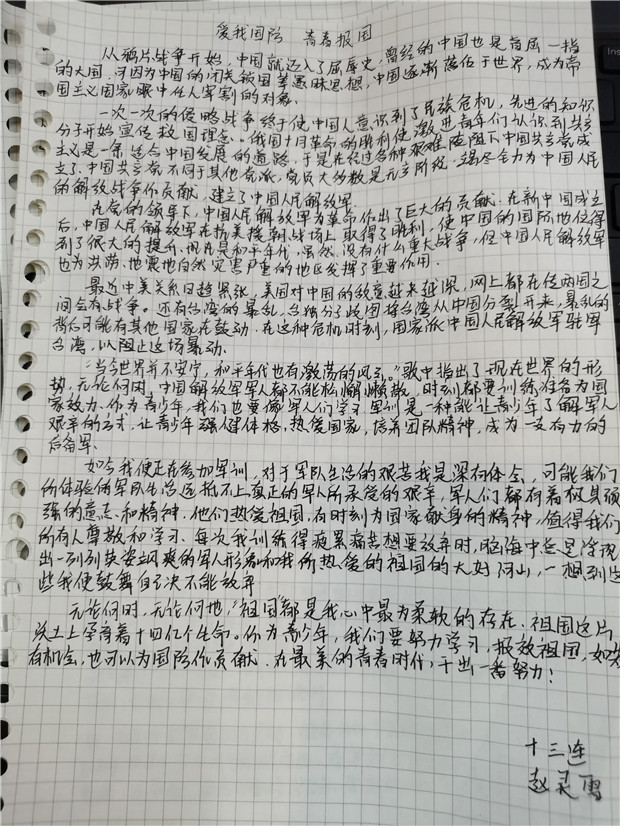 爱我国防 青春报国
从鸦片战争开始，中国就迈入了屈辱史，曾经的中国也是首屈一指
的大国，可因为中国的闭关锁国等愚昧思想，中国逐渐落伍于世界，成为帝
国主义国家眼中任人宰割的对象。
一次一次的侵略战争终于使中国人意识到了民族危机，先进的知识
分子开始宣传救国理念。俄国十月革命的胜利使激进青年们认识到共产
主义是一条适合中国发展的道路，于是在经过各种艰难险阻下中国共产党成
立了，中国共产党不同于其他党派，党员大多数是无产阶级，竭尽全力为中国人民
的解放战争作贡献，建立了中国人民解放军。
在党的领导下，中国人民解放军为革命作出了巨大的贡献。在新中国成立
后，中国人民解放军在抗美援朝战场上取得了胜利，使中国的国际地位得
到了很大的提升，现在是和平年代，虽然没有什么重大战争，但中国人民解放军
也为洪涝、地震地自然灾害严重的地区发挥了重要作用。
最近中美关系日趋紧张，美国对中国的敌意越来越深，网上都在传两国之
间会有战争。还有台湾的暴乱，台独分子歧图将台湾从中国分裂开来，暴乱的
背后可能有其他国家在鼓动。在这种危机时刻，国家派中国人民解放军驻军
台湾，以阻止这场暴动。
“当今世界并不安宁，和平年代也有激荡的风云。”歌中指出了现在世界的形
势，无论何时，中国解放军军人都不能松懈懒散，时刻都要训练准备为国
家效力。作为青少年，我们也要像军人们学习，军训是一种能让青少年了解军人
艰辛的方式，让青少年强健体格，热爱国家，培养团队精神，成为一支有力的
后备军。
如今我便正在参加军训，对于军队生活的艰苦我是深有体会，可能我们
所体验的军队生活远抵不上真正的军人所承受的艰辛，军人们都有着极其顽
强的意志和精神，他们热爱祖国，有时刻为国家献身的精神，值得我们
所有人尊敬和学习。每次我训练得疲累痛苦想要放弃时，脑海中总是浮现
出一列列英姿飒爽的军人形象和我所热爱的祖国的大好河山，一想到这
些我便鼓舞自己决不能放弃
无论何时，无论何地，“祖国”都是我心中最为柔软的存在，祖国这片
沃土上孕育着十四亿个生命。作为青少年，我们要努力学习，报效祖国，如果
有机会，也可以为国防作贡献，在最美的青春时代，干出一番努力！
十三连
赵灵雪